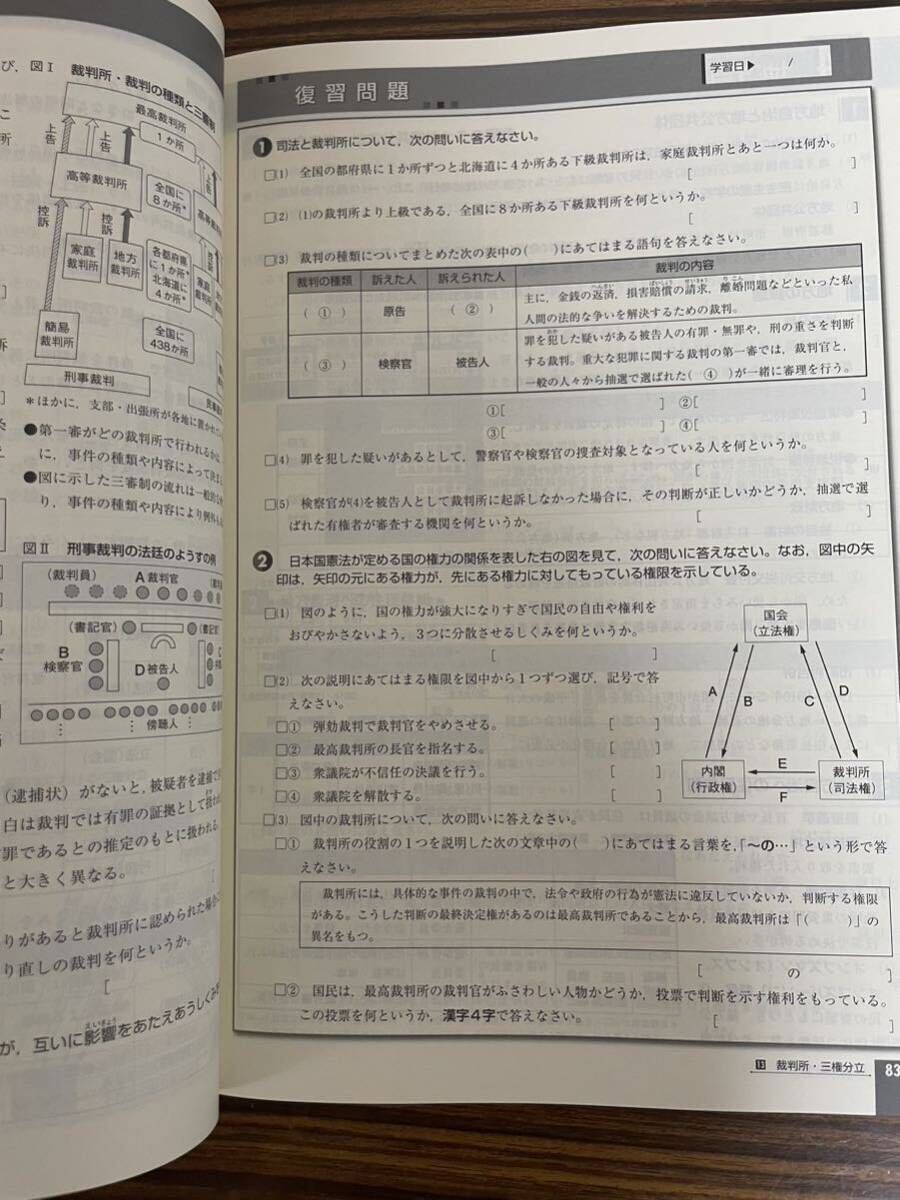 び、図Ⅰ 裁判所・裁判の種類と三審制
最高裁判所
1か所
上告
上告
上告
高等裁判所
全国に
8か所*
高等
控訴
控訴
家庭
裁判所
地方
裁判所
各都府県
に1か所*
北海道に
4か所*
簡易
裁判所
全国に
438か所
刑事裁判
*ほかに、支部・出張所が各地に置かれて
●第一審がどの裁判所で行われるか
に、事件の種類や内容によって決ま
●図に示した三審制の流れは一般的な
り、事件の種類や内容により例外も
図Ⅱ 刑事裁判の法廷のようすの例
(裁判員) A 裁判官
(書記官)
(書記
B
検察官
D 被告人
傍聴人
(逮捕状)がないと、被疑者を逮捕で
白は裁判では有罪の証拠として扱わ
罪であるとの推定のもとに扱われる
と大きく異なる。
りがあると裁判所に認められた場合
り直しの裁判を何というか。
[
が、互いに影響をあたえあうしくみを
えいきょう
復習問題
学習日▶ /
1 司法と裁判所について、次の問いに答えなさい。
□(1) 全国の都府県に1か所ずつと北海道に4か所ある下級裁判所は、家庭裁判所とあと一つは何か。
[ ]
□(2) (1)の裁判所より上級である、全国に8か所ある下級裁判所を何というか。
[ ]
□(3) 裁判の種類についてまとめた次の表中の( )にあてはまる語句を答えなさい。
裁判の種類 訴えた人 訴えられた人 裁判の内容
( ① ) 原告 ( ② ) 主に、金銭の返済、損害賠償の請求、離婚問題などといった私
人間の法的な争いを解決するための裁判。
( ③ ) 検察官 被告人 罪を犯した疑いがある被告人の有罪・無罪や、刑の重さを判断
する裁判。重大な犯罪に関する裁判の第一審では、裁判官と、
一般の人々から抽選で選ばれた( ④ )が一緒に審理を行う。
①[ ] ②[ ]
③[ ] ④[ ]
□(4) 罪を犯した疑いがあるとして、警察官や検察官の捜査対象となっている人を何というか。
[ ]
□(5) 検察官が(4)を被告人として裁判所に起訴しなかった場合に、その判断が正しいかどうか、抽選で選
ばれた有権者が審査する機関を何というか。 [ ]
2 日本国憲法が定める国の権力の関係を表した右の図を見て、次の問いに答えなさい。なお、図中の矢
印は、矢印の元にある権力が、先にある権力に対してもっている権限を示している。
□(1) 図のように、国の権力が強大になりすぎて国民の自由や権利を
おびやかさないよう、3つに分散させるしくみを何というか。
[ ]
□(2) 次の説明にあてはまる権限を図中から1つずつ選び、記号で答
えなさい。
□① 弾劾裁判で裁判官をやめさせる。 [ ]
□② 最高裁判所の長官を指名する。 [ ]
□③ 衆議院が不信任の決議を行う。 [ ]
□④ 衆議院を解散する。 [ ]
国会
(立法権)
A
B
C
D
内閣
(行政権)
E
F
裁判所
(司法権)
□(3) 図中の裁判所について、次の問いに答えなさい。
□① 裁判所の役割の1つを説明した次の文章中の( )にあてはまる言葉を、「~の…」という形で答
えなさい。
裁判所には、具体的な事件の裁判の中で、法令や政府の行為が憲法に違反していないか、判断する権限
がある。こうした判断の最終決定権があるのは最高裁判所であることから、最高裁判所は「( )」の
異名をもつ。
[ の ]
□② 国民は、最高裁判所の裁判官がふさわしい人物かどうか、投票で判断を示す権利をもっている。
この投票を何というか、漢字4字で答えなさい。 [ ]
13 裁判所・三権分立 83